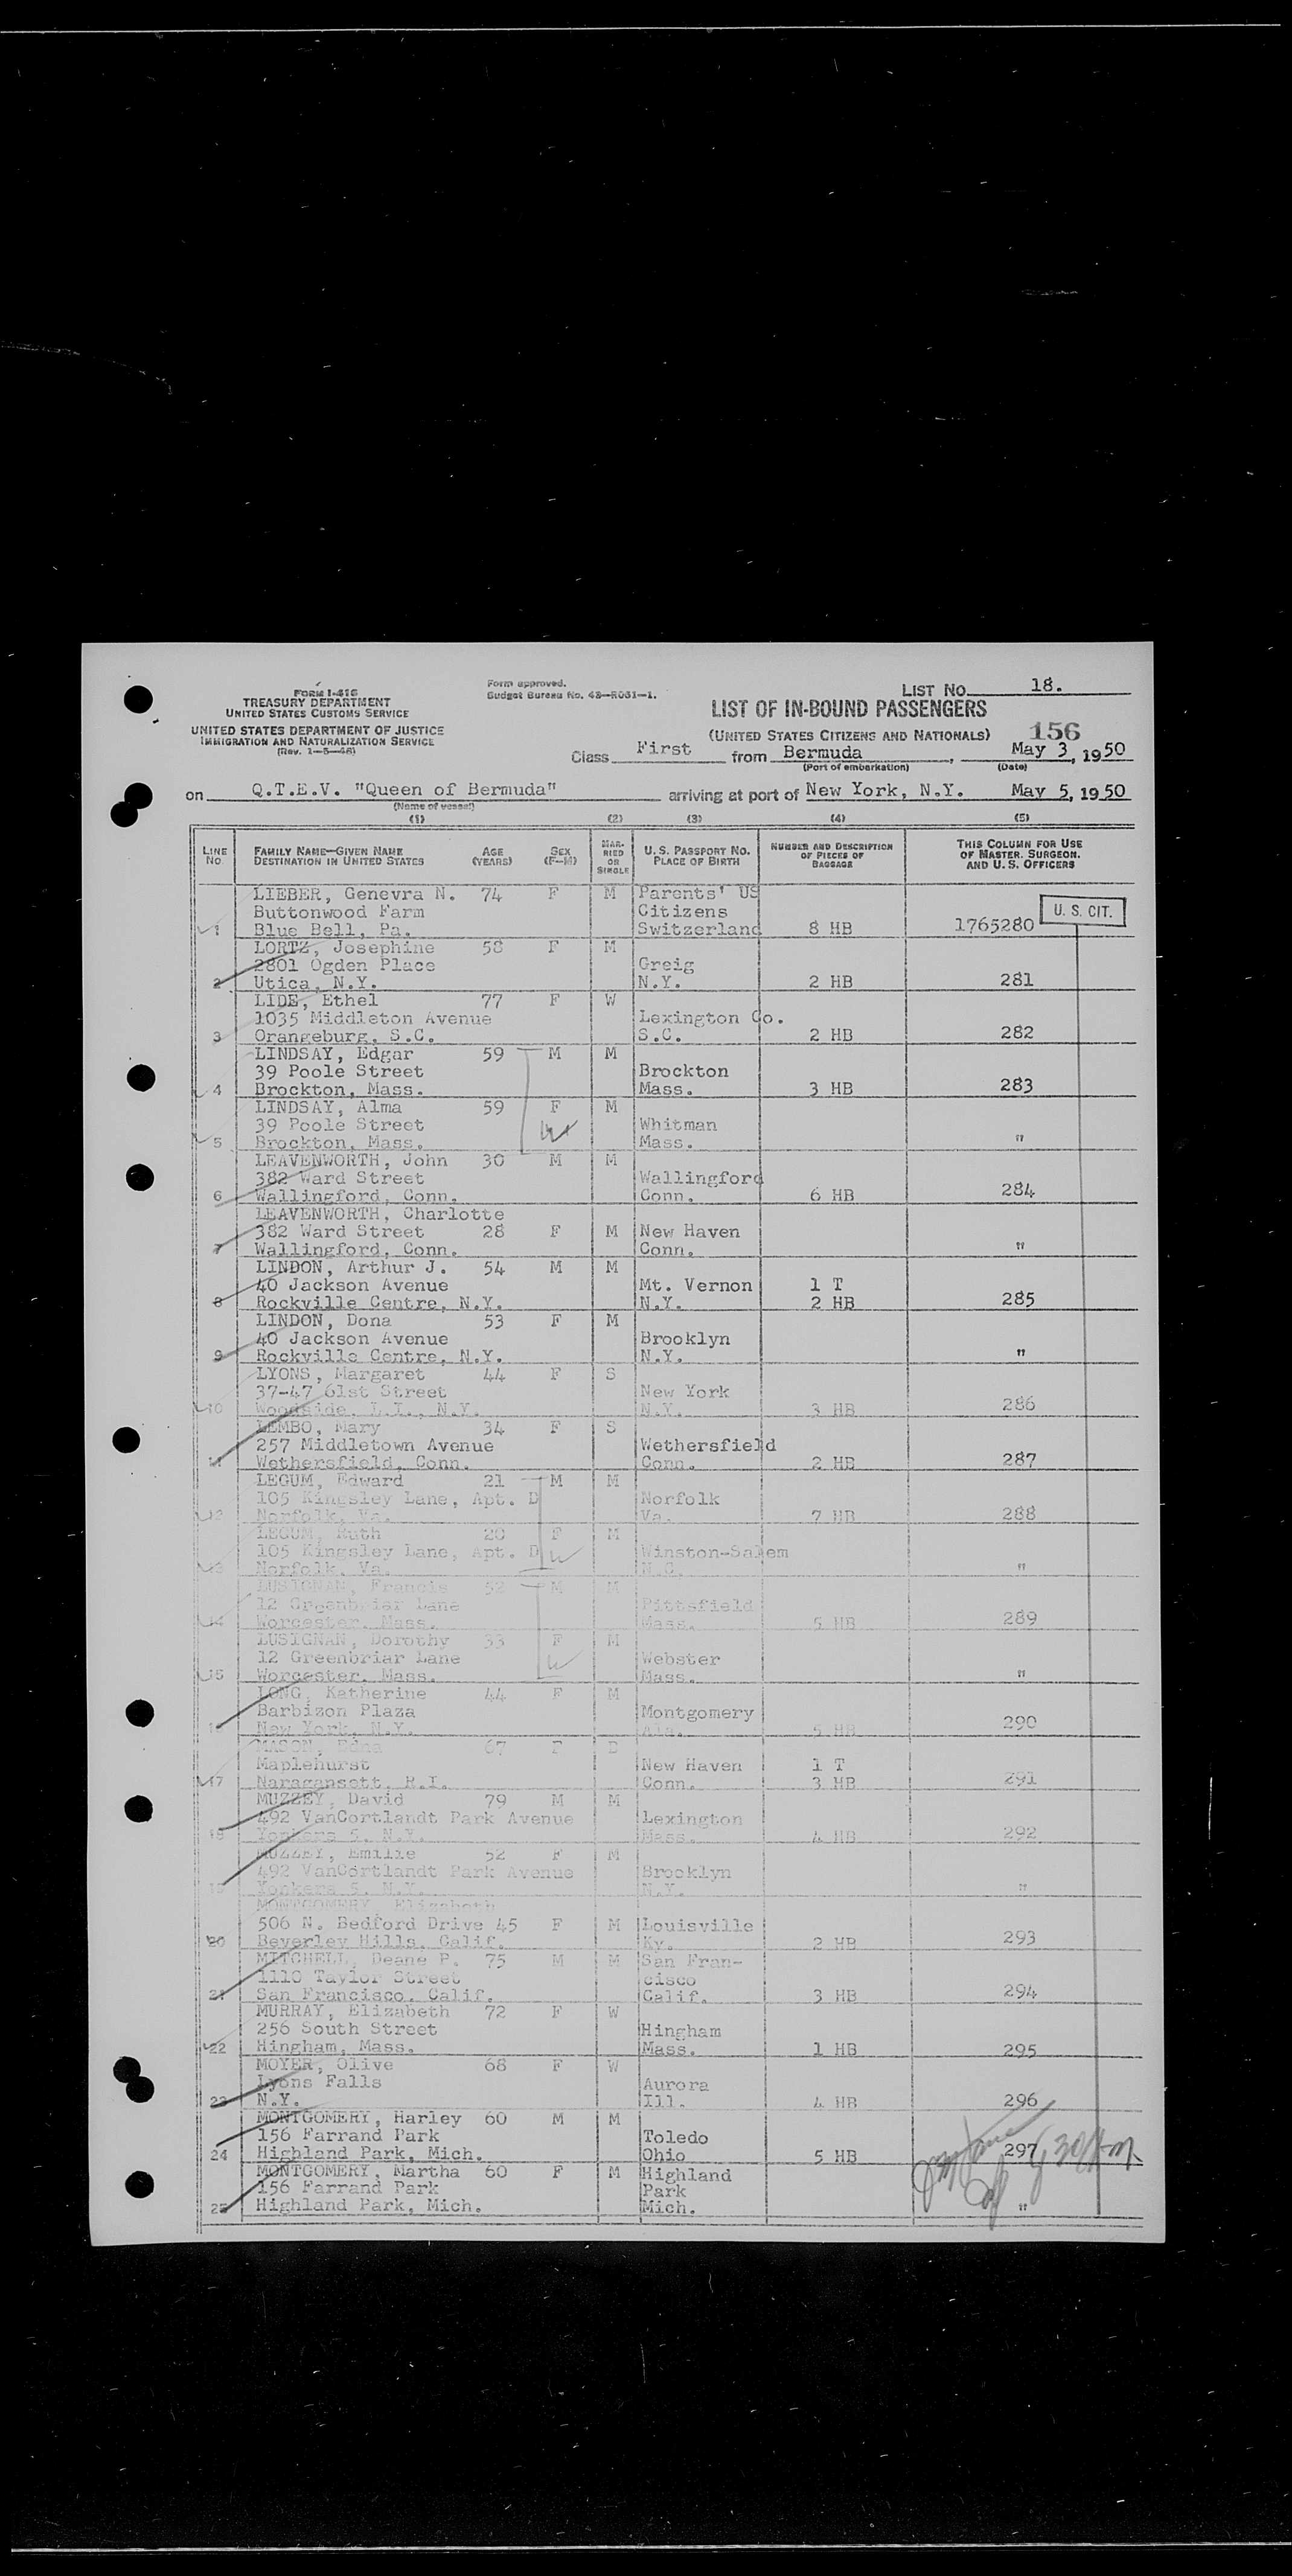 FORM I-416
TREASURY DEPARTMENT
UNITED STATES CUSTOMS SERVICE
UNITED STATES DEPARTMENT OF JUSTICE
IMMIGRATION AND NATURALIZATION SERVICE
(Rev. 1-5-48)
Form approved.
Budget Bureau No. 43-R031-1.
LIST No. 18.
LIST OF IN-BOUND PASSENGERS
(UNITED STATES CITIZENS AND NATIONALS) 156
Class First from Bermuda, May 3, 1950
(Port of embarkation) (Date)
on Q.T.E.V. "Queen of Bermuda" arriving at port of New York, N.Y. May 5, 1950
(Name of vessel)
(1) (2) (3) (4) (5)
LINE No. FAMILY NAME—GIVEN NAME DESTINATION IN UNITED STATES AGE (YEARS) SEX (F-M) MARRIED OR SINGLE U. S. PASSPORT NO. PLACE OF BIRTH NUMBER AND DESCRIPTION OF PIECES OF BAGGAGE THIS COLUMN FOR USE OF MASTER, SURGEON, AND U. S. OFFICERS
LIEBER, Genevra N. 74 F M Parents' US
Buttonwood Farm Citizens U. S. CIT.
1 Blue Bell, Pa. Switzerland 8 HB 1765280
LORTZ, Josephine 58 F M
2801 Ogden Place Greig
2 Utica, N.Y. N.Y. 2 HB 281
LIDE, Ethel 77 F W
1035 Middleton Avenue Lexington Co.
3 Orangeburg, S.C. S.C. 2 HB 282
LINDSAY, Edgar 59 M M
39 Poole Street Brockton
4 Brockton, Mass. Mass. 3 HB 283
LINDSAY, Alma 59 F M
39 Poole Street Whitman
5 Brockton, Mass. Mass. "
LEAVENWORTH, John 30 M M
382 Ward Street Wallingford
6 Wallingford, Conn. Conn. 6 HB 284
LEAVENWORTH, Charlotte
382 Ward Street 28 F M New Haven
7 Wallingford, Conn. Conn. "
LINDON, Arthur J. 54 M M
40 Jackson Avenue Mt. Vernon 1 T
8 Rockville Centre, N.Y. N.Y. 2 HB 285
LINDON, Dona 53 F M
40 Jackson Avenue Brooklyn
9 Rockville Centre, N.Y. N.Y. "
LYONS, Margaret 44 F S
37-47 61st Street New York
10 Woodside, L.I., N.Y. N.Y. 3 HB 286
LEMBO, Mary 34 F S
257 Middletown Avenue Wethersfield
11 Wethersfield, Conn. Conn. 2 HB 287
LEGUM, Edward 21 M M
105 Kingsley Lane, Apt. D Norfolk
12 Norfolk, Va. Va. 7 HB 288
LEGUM, Ruth 20 F M
105 Kingsley Lane, Apt. D Winston-Salem
13 Norfolk, Va. N.C. "
LUSIGNAN, Francis 52 M M
12 Greenbriar Lane Pittsfield
14 Worcester, Mass. Mass. 5 HB 289
LUSIGNAN, Dorothy 33 F M
12 Greenbriar Lane Webster
15 Worcester, Mass. Mass. "
LONG, Katherine 44 F M
Barbizon Plaza Montgomery
16 New York, N.Y. Ala. 5 HB 290
MASON, Edna 67 F
Maplehurst New Haven 1 T
17 Naragansett, R.I. Conn. 3 HB 291
MUZZEY, David 79 M M
492 VanCortlandt Park Avenue Lexington
18 Yonkers 5, N.Y. Mass. 4 HB 292
MUZZEY, Emilie 52 F M
492 VanCortlandt Park Avenue Brooklyn
19 Yonkers 5, N.Y. N.Y. "
MONTGOMERY, Elizabeth
506 N. Bedford Drive 45 F M Louisville
20 Beverley Hills, Calif. Ky. 2 HB 293
MITCHELL, Deane P. 75 M M San Fran-
1110 Taylor Street cisco
21 San Francisco, Calif. Calif. 3 HB 294
MURRAY, Elizabeth 72 F W
256 South Street Hingham
22 Hingham, Mass. Mass. 1 HB 295
MOYER, Olive 68 F W
Lyons Falls Aurora
23 N.Y. Ill. 4 HB 296
MONTGOMERY, Harley 60 M M
156 Farrand Park Toledo
24 Highland Park, Mich. Ohio 5 HB 297
MONTGOMERY, Martha 60 F M Highland
156 Farrand Park Park
25 Highland Park, Mich. Mich. "